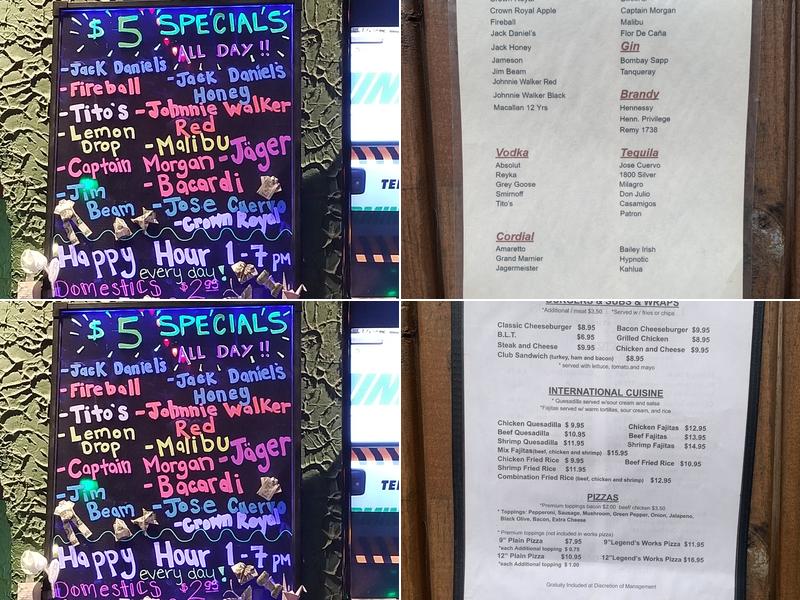 $5 SPECIALS
ALL DAY !!
-Jack Daniel's
-Jack Daniel's Honey
-Fireball
-Tito's
-Johnnie Walker Red
-Lemon Drop
-Malibu
-Jäger
-Captain Morgan
-Bacardi
-Jim Beam
-Jose Cuervo
-Crown Royal
Happy Hour 1-7 PM
every day!
Domestics $2.95
Crown Royal Apple
Fireball
Jack Daniel's
Jack Honey
Jameson
Jim Beam
Johnnie Walker Red
Johnnie Walker Black
Macallan 12 Yrs
Captain Morgan
Malibu
Flor De Caña
Gin
Bombay Sapp
Tanqueray
Brandy
Hennessy
Henn. Privilege
Remy 1738
Vodka
Absolut
Reyka
Grey Goose
Smirnoff
Tito's
Tequila
Jose Cuervo
1800 Silver
Milagro
Don Julio
Casamigos
Patron
Cordial
Amaretto
Grand Marnier
Jagermeister
Bailey Irish
Hypnotic
Kahlua
$5 SPECIALS
ALL DAY !!
-Jack Daniel's
-Jack Daniel's Honey
-Fireball
-Tito's
-Johnnie Walker Red
-Lemon Drop
-Malibu
-Jäger
-Captain Morgan
-Bacardi
-Jim Beam
-Jose Cuervo
-Crown Royal
Happy Hour 1-7 PM
every day!
Domestics $2.95
BURGERS & SUBS & WRAPS
*Additional / meat $3.50 *Served w / fries or chips
Classic Cheeseburger $8.95
Bacon Cheeseburger $9.95
B.L.T. $6.95
Grilled Chicken $8.95
Steak and Cheese $9.95
Chicken and Cheese $9.95
Club Sandwich (turkey, ham and bacon) $8.95
* served with lettuce, tomato,and mayo
INTERNATIONAL CUISINE
* Quesadilla served w/sour cream and salsa
*Fajitas served w/ warm tortillas, sour cream, and rice
Chicken Quesadilla $ 9.95
Chicken Fajitas $12.95
Beef Quesadilla $10.95
Beef Fajitas $13.95
Shrimp Quesadilla $11.95
Shrimp Fajitas $14.95
Mix Fajitas(beef, chicken and shrimp) $15.95
Chicken Fried Rice $ 9.95
Beef Fried Rice $10.95
Shrimp Fried Rice $11.95
Combination Fried Rice (beef, chicken and shrimp) $12.95
PIZZAS
*Premium toppings bacon $2.00 beef chicken $3.50
* Toppings: Pepperoni, Sausage, Mushroom, Green Pepper, Onion, Jalapeno,
Black Olive, Bacon, Extra Cheese
* Premium toppings (not included in works pizza)
9" Plain Pizza $7.95 9"Legend's Works Pizza $11.95
*each Additional topping $ 0.75
12" Plain Pizza $10.95 12"Legend's Works Pizza $16.95
*each Additional topping $ 1.00
Gratuity Included at Discretion of Management